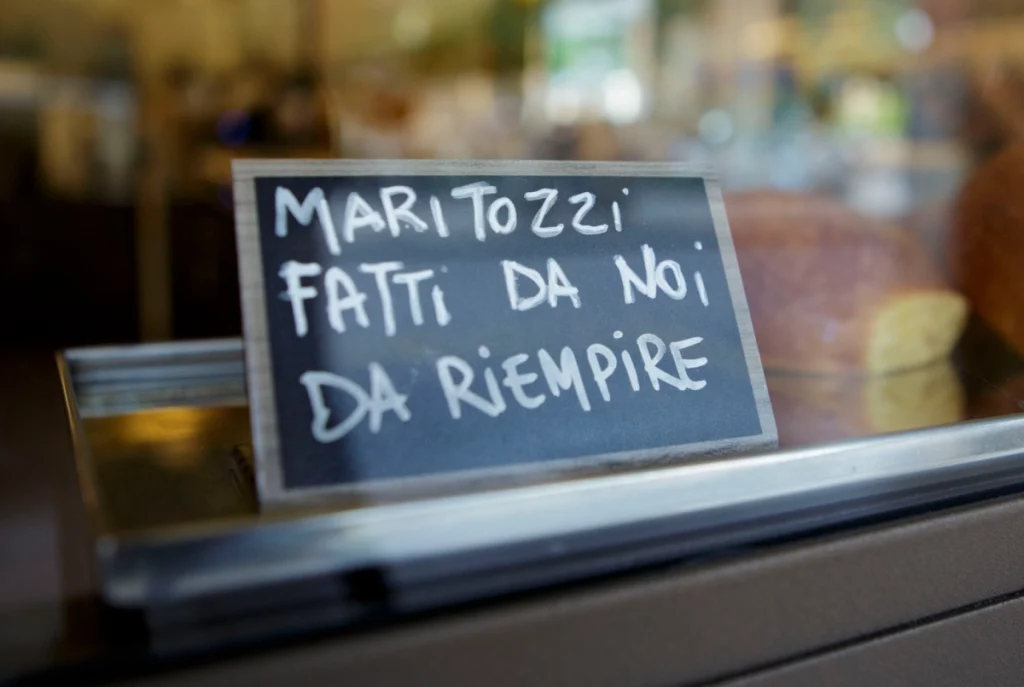 MARITOZZi
FATTi DA NOi
DA RiEMPiRE